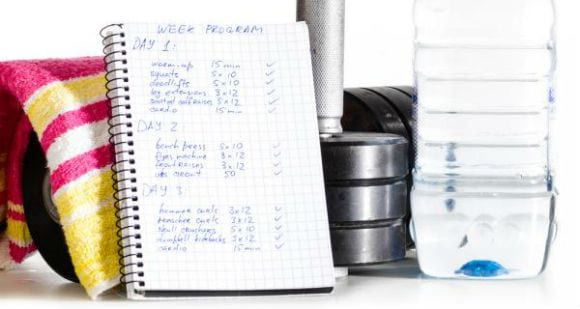 WEEK PROGRAM
DAY 1:
warm-up 15 min ✓
squats 5x10 ✓
deadlifts 5x10 ✓
leg extensions 3x12 ✓
seated calf raises 5x12 ✓
cardio 15 min ✓
DAY 2
bench press 5x10 ✓
flyes machine 3x12 ✓
front raises 3x12 ✓
abs 50 ✓
DAY 3
hammer curls 3x12 ✓
preacher curls 3x12 ✓
skull crushers 5x10 ✓
dumbbell kickbacks 3x12 ✓
cardio 15 min ✓